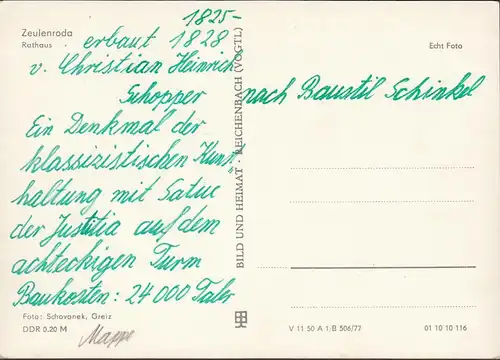 Zeulenroda
Rathaus
1825-
erbaut 1828
v. Christian Heinrich
Schopper nach Baustil Schinkel
Ein Denkmal der
klassizistischen Kunst„
haltung mit Satue
der Justitia auf dem
achteckigen Turm
Baukosten: 24 000 Taler
Foto: Schovanek, Greiz
DDR 0.20 M
Mappe
BILD UND HEIMAT · REICHENBACH (VOGTL)
Echt Foto
V 11 50 A 1/B 506/77 01 10 10 116